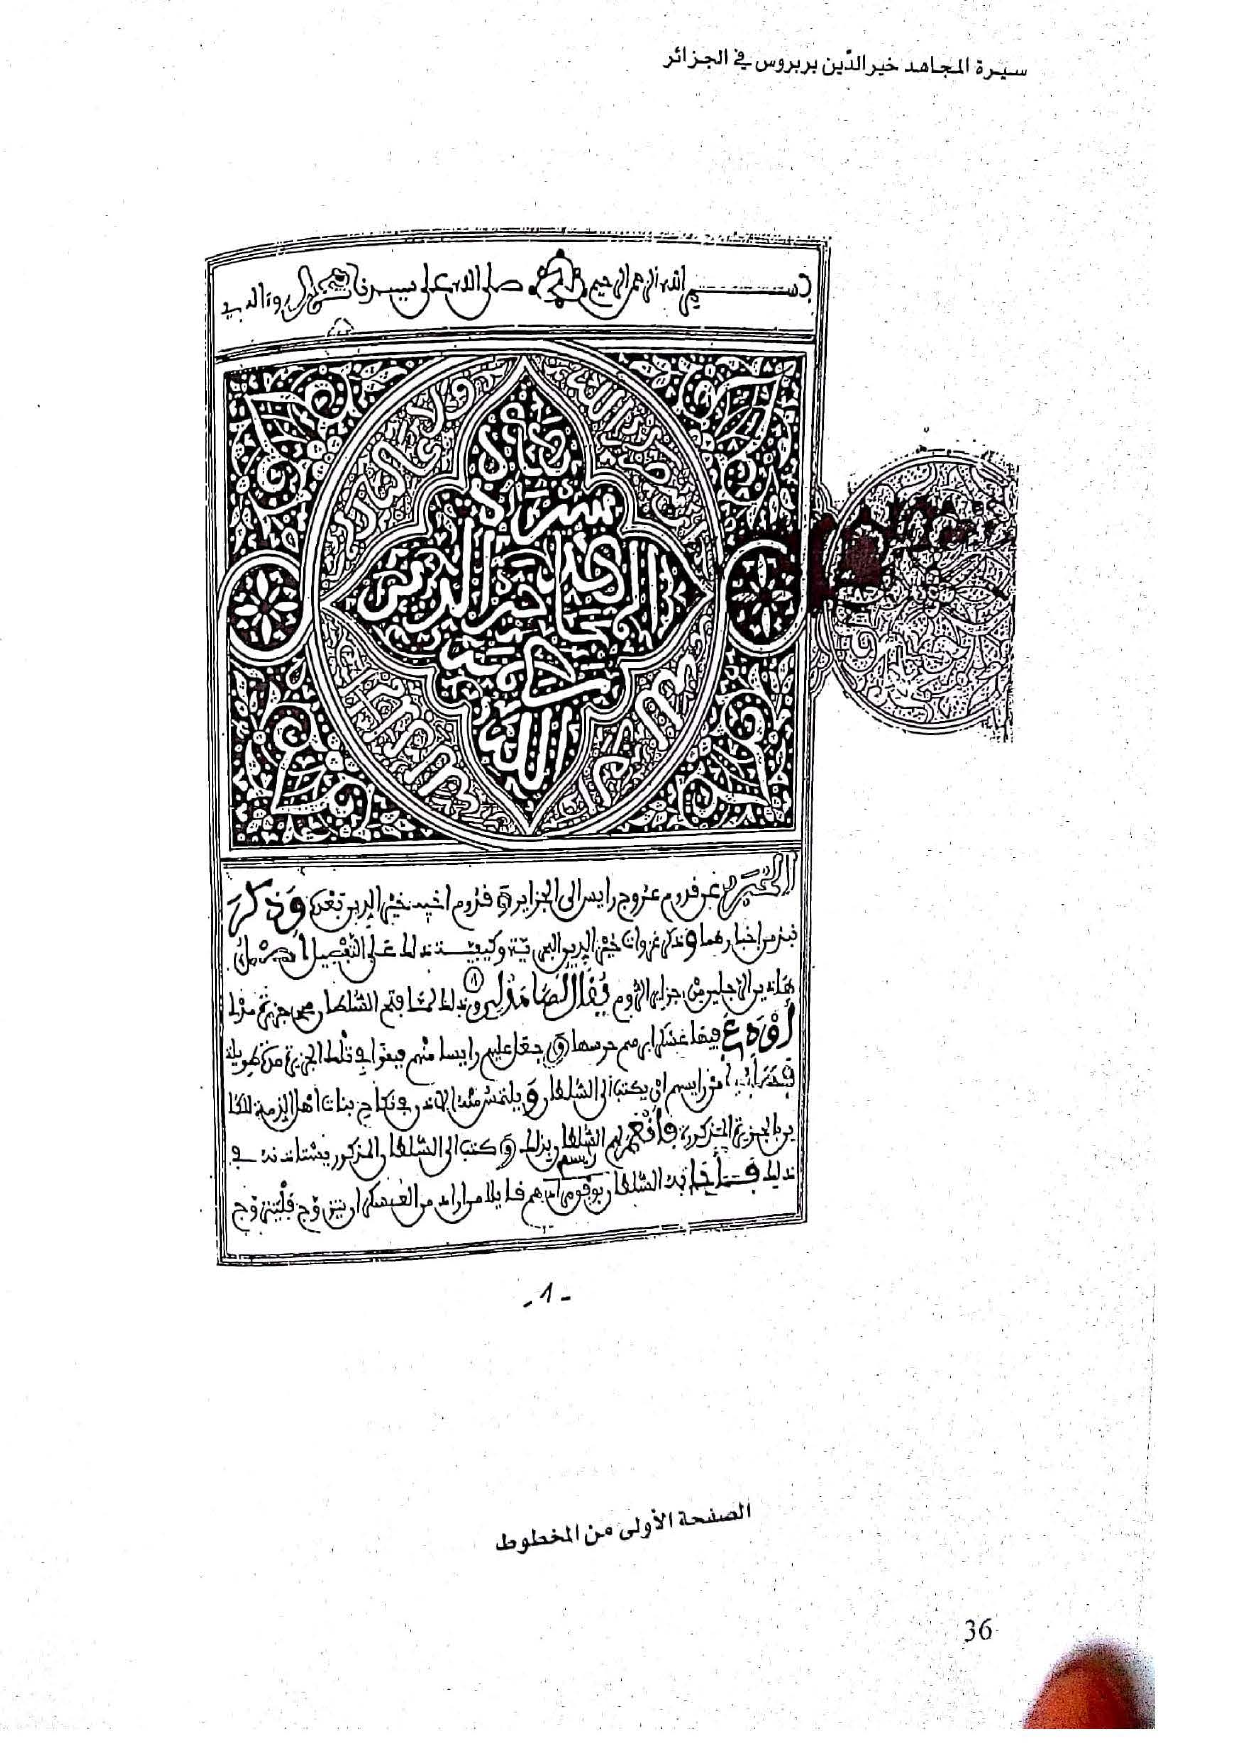 سيرة المجاهد خير الدّين بربروس في الجزائر
بسم الله الرحمن الرحيم صلى الله على سيدنا محمد وءاله
هذه
سيرة
المجاهد
خير الدين
الله
الخبر عن قدوم عروج رايس الى الجزاير و قدوم اخيه خير الدين بعده وذكر
نبذ من اخبارهما وذكر غزوات خير الدين البحرية وكيفية ذلك على التفصيل اصل
هاذين الرجلين من جزاير الروم يقال لها مدلي وذلك لما فتح السلطان محمد جزيرة مدلي
أودع فيها عسكرا برسم حرسها و جعل عليهم رايسا منهم فبقوا في تلك الجزيرة مدة طويلة
رايسهم ان يكتب الى السلطان و يلتمس منه الاذن في نكاح بنات اهل الذمة
بالجزيرة المذكورة فأنعم لهم رايسهم بذلك و كتب الى السلطان المذكور يستاذنه في
ذلك فأجابه السلطان قايلا من اراد من العسكر ان يتزوج فليتزوج
-1-
الصفحة الأولى من المخطوط
36